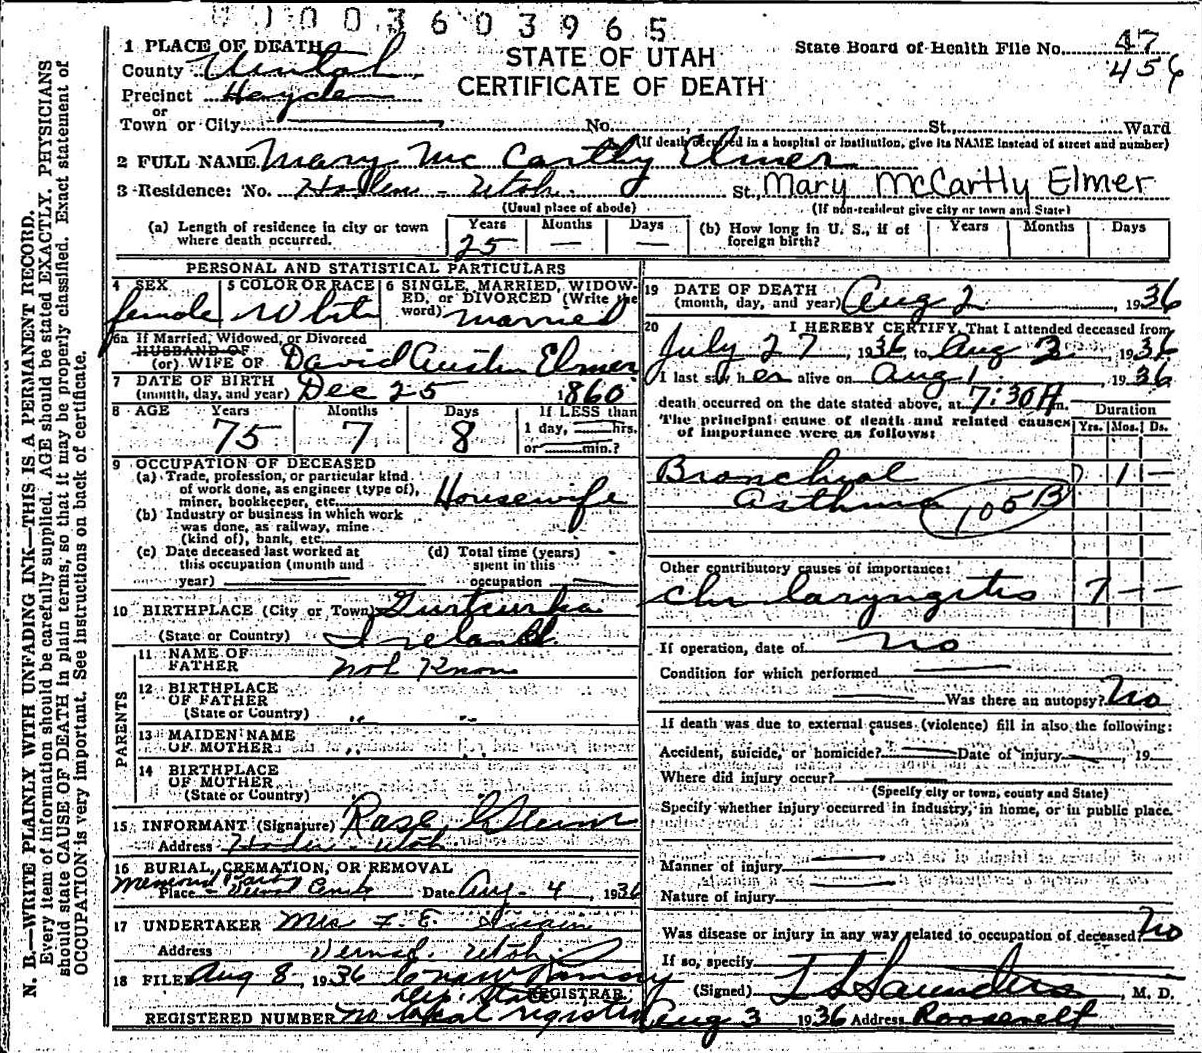 1003603965
STATE OF UTAH
CERTIFICATE OF DEATH
State Board of Health File No. 47
456
1 PLACE OF DEATH
County Uintah
Precinct Hayden
or
Town or City No. St., Ward
(If death occurred in a hospital or institution, give its NAME instead of street and number)
2 FULL NAME Mary McCarthy Elmer
3 Residence: No. Utah. St, Mary McCartHy Elmer
(Usual place of abode) (If non-resident give city or town and State)
(a) Length of residence in city or town where death occurred. Years 25 Months — Days —
(b) How long in U. S., if of foreign birth? Years Months Days
PERSONAL AND STATISTICAL PARTICULARS
4 SEX female
5 COLOR OR RACE White
6 SINGLE, MARRIED, WIDOWED, or DIVORCED (Write the word) married
6a If Married, Widowed, or Divorced
HUSBAND OF
(or) WIFE OF David Austin Elmer
7 DATE OF BIRTH
(month, day, and year) Dec 25 1860
8 AGE Years 75 Months 7 Days 8 If LESS than 1 day, hrs. or min.?
9 OCCUPATION OF DECEASED
(a) Trade, profession, or particular kind
of work done, as engineer (type of),
miner, bookkeeper, etc. Housewife
(b) Industry or business in which work
was done, as railway, mine
(kind of), bank, etc.
(c) Date deceased last worked at
this occupation (month and
year)
(d) Total time (years)
spent in this
occupation
10 BIRTHPLACE (City or Town)
(State or Country) Ireland
PARENTS
11 NAME OF
FATHER Not Know
12 BIRTHPLACE
OF FATHER
(State or Country) " "
13 MAIDEN NAME
OF MOTHER "
14 BIRTHPLACE
OF MOTHER
(State or Country)
15 INFORMANT (Signature)
Address Utah
16 BURIAL, CREMATION, OR REMOVAL
Place Date Aug. 4, 1936
17 UNDERTAKER Mrs F. E.
Address Vernal, Utah
18 FILED Aug 8, 1936
Dep. State REGISTRAR
REGISTERED NUMBER No local registrar
19 DATE OF DEATH
(month, day, and year) Aug 2 1936
20 I HEREBY CERTIFY, That I attended deceased from
July 27, 1936 to Aug 2, 1936
I last saw her alive on Aug 1, 1936
death occurred on the date stated above, at 7:30 A m.
The principal cause of death and related causes
of importance were as follows:
Duration
Yrs. Mos. Ds.
Bronchial 1 —
Asthma 105B
Other contributory causes of importance:
Chr laryngitis 7 — —
If operation, date of no
Condition for which performed
Was there an autopsy? No
If death was due to external causes (violence) fill in also the following:
Accident, suicide, or homicide? Date of injury, 19
Where did injury occur?
(Specify city or town, county and State)
Specify whether injury occurred in industry, in home, or in public place.
Manner of injury
Nature of injury
Was disease or injury in any way related to occupation of deceased? No
If so, specify
(Signed) L S Saunders, M. D.
Aug 3 1936 Address Roosevelt
N. B.—WRITE PLAINLY WITH UNFADING INK—THIS IS A PERMANENT RECORD.
Every item of information should be carefully supplied. AGE should be stated EXACTLY. PHYSICIANS
should state CAUSE OF DEATH in plain terms, so that it may be properly classified. Exact statement of
OCCUPATION is very important. See instructions on back of certificate.